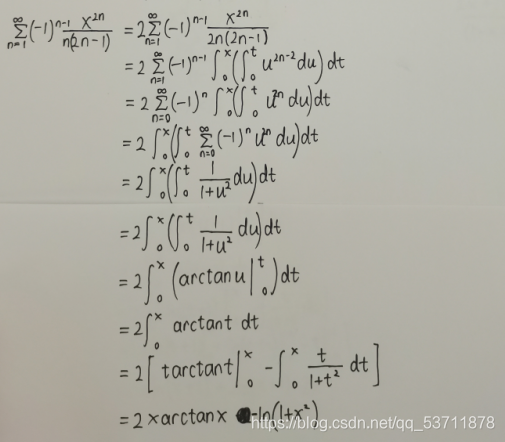 ∑_{n=1}^{∞}(-1)^{n-1} x^{2n}/(n(2n-1)) = 2∑_{n=1}^{∞}(-1)^{n-1} x^{2n}/(2n(2n-1))
= 2∑_{n=1}^{∞}(-1)^{n-1} ∫_0^x(∫_0^t u^{2n-2}du)dt
= 2∑_{n=0}^{∞}(-1)^n ∫_0^x(∫_0^t u^{2n}du)dt
= 2∫_0^x(∫_0^t ∑_{n=0}^{∞}(-1)^n u^{2n}du)dt
= 2∫_0^x(∫_0^t 1/(1+u²) du)dt
= 2∫_0^x(∫_0^t 1/(1+u²) du)dt
= 2∫_0^x(arctanu|_0^t)dt
= 2∫_0^x arctant dt
= 2[tarctant|_0^x - ∫_0^x t/(1+t²) dt]
= 2xarctanx -ln(1+x²)
https://blog.csdn.net/qq_53711878